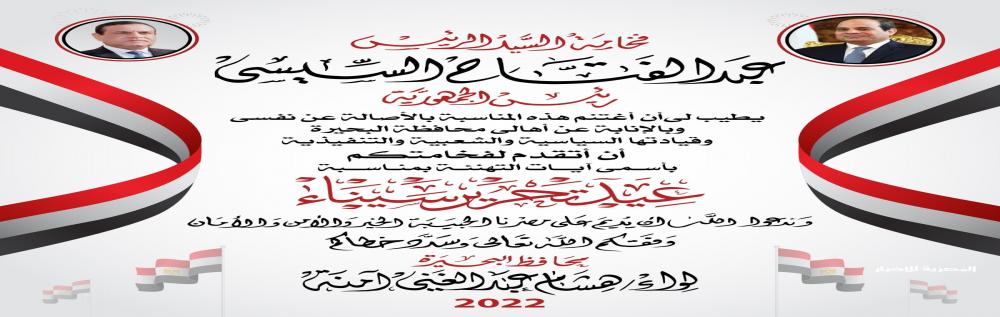 فخامة السيد الرئيس
عبد الفتاح السيسى
رئيس الجمهورية
يطيب لى أن أغتنم هذه المناسبة بالأصالة عن نفسى
وبالإنابة عن أهالى محافظة البحيرة
وقيادتها السياسية والشعبية والتنفيذية
أن أتقدم لفخامتكم
بأسمى آيات التهنئة بمناسبة
عيد تحرير سيناء
وندعوا الله ان يديم على مصرنا الحبيبة الخير والأمن والأمان
وفقكم الله تعالى وسدد خطاكم
محافظ البحيرة
لواء/ هشام عبد الغنى آمنة
2022
المصرية للأخبار